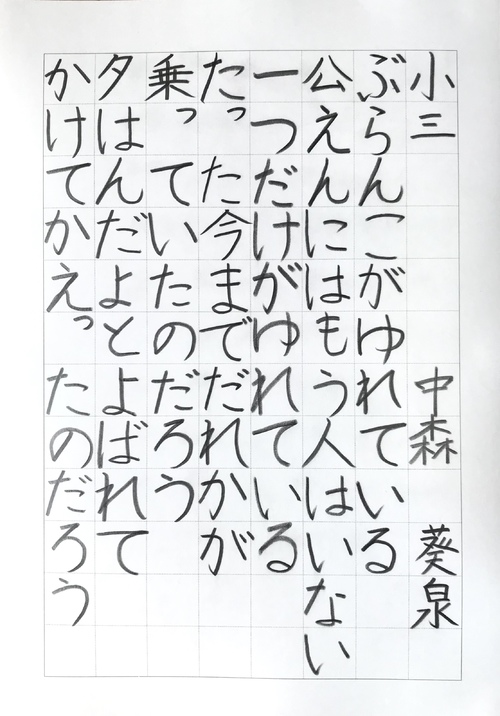 小三 中森 葵泉
ぶらんこがゆれている
公えんにはもう人はいない
一つだけがゆれている
たった今までだれかが
乗っていたのだろう
夕はんだよとよばれて
かけてかえったのだろう